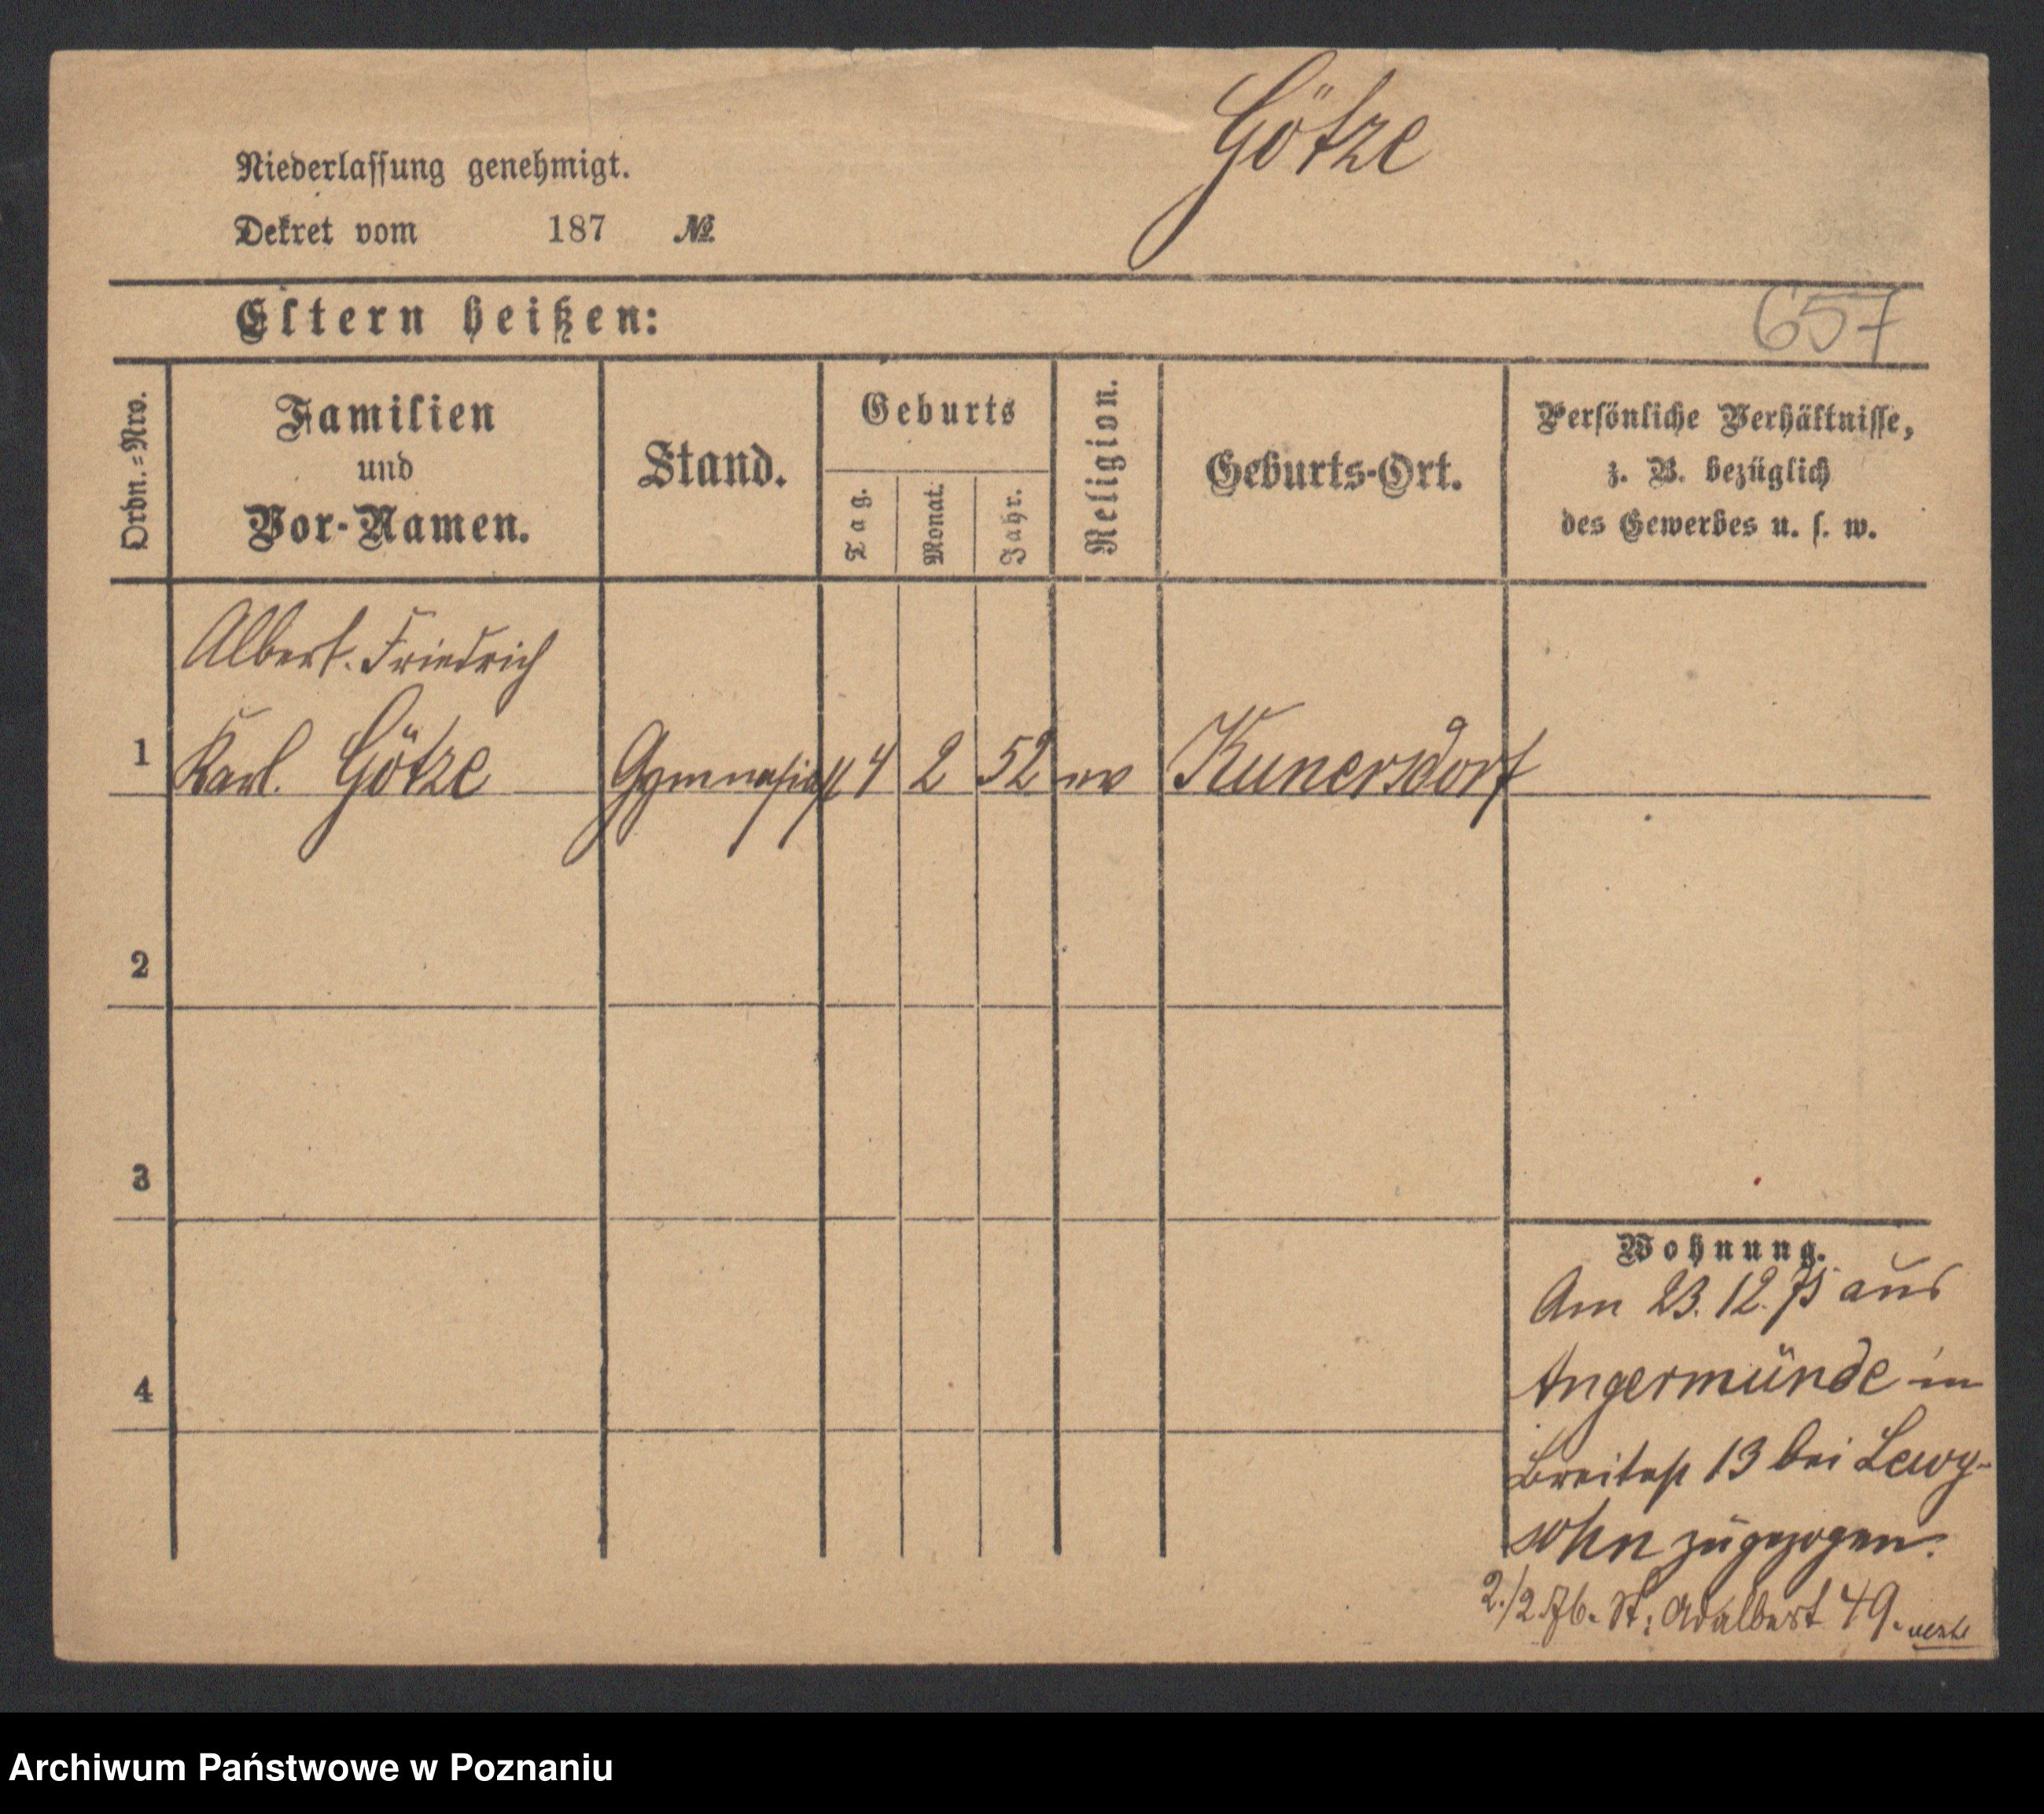 Götze
Niederlassung genehmigt.
Dekret vom 187 №
Eltern heißen:
657
Ordn.-Nro.
Familien
und
Vor-Namen.
Stand.
Geburts
Tag.
Monat.
Jahr.
Religion.
Geburts-Ort.
Persönliche Verhältnisse,
z. B. bezüglich
des Gewerbes u. s. w.
Albert. Friedrich
1 Karl. Götze Gymnasiast 4 2 52 ev Kunersdorf
2
3
4
Wohnung.
Am 23. 12. 75 aus
Angermünde in
Breitest 13 bei Lewy-
sohn zugezogen.
2./2 76. St: Adalbert 49.
Archiwum Państwowe w Poznaniu